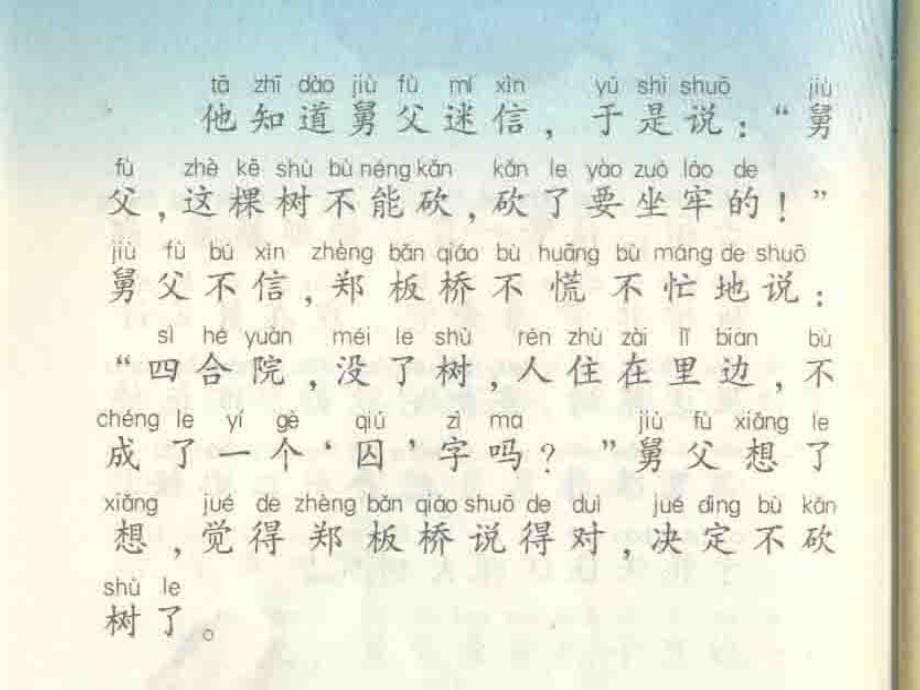 tā zhī dào jiù fù mí xìn yú shì shuō jiù
他知道舅父迷信，于是说：“舅
fù zhè kē shù bù néng kǎn kǎn le yào zuò láo de
父，这棵树不能砍，砍了要坐牢的！”
jiù fù bú xìn zhèng bǎn qiáo bù huāng bù máng de shuō
舅父不信，郑板桥不慌不忙地说：
sì hé yuàn méi le shù rén zhù zài lǐ bian bù
“四合院，没了树，人住在里边，不
chéng le yí gè qiú zì ma jiù fù xiǎng le
成了一个‘囚’字吗？”舅父想了
xiǎng jué de zhèng bǎn qiáo shuō de duì jué dìng bù kǎn
想，觉得郑板桥说得对，决定不砍
shù le
树了。